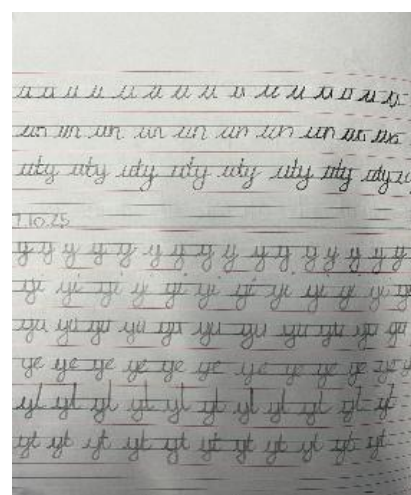 u u u u u u u u u u u u u u u
un un un un un un un un un un un
uty uty uty uty uty uty uty uty
7.10.25
y y y y y y y y y y y y y y
yi yi yi y yi yi yi yi yi yi yi yi
yu yu yu yu yu yu yu yu yu yu yu
ye ye ye ye ye ye ye ye ye ye ye
yl yl yl yl yl yl yl yl yl yl yl
yt yt yt yt yt yt yt yt yt yt yt